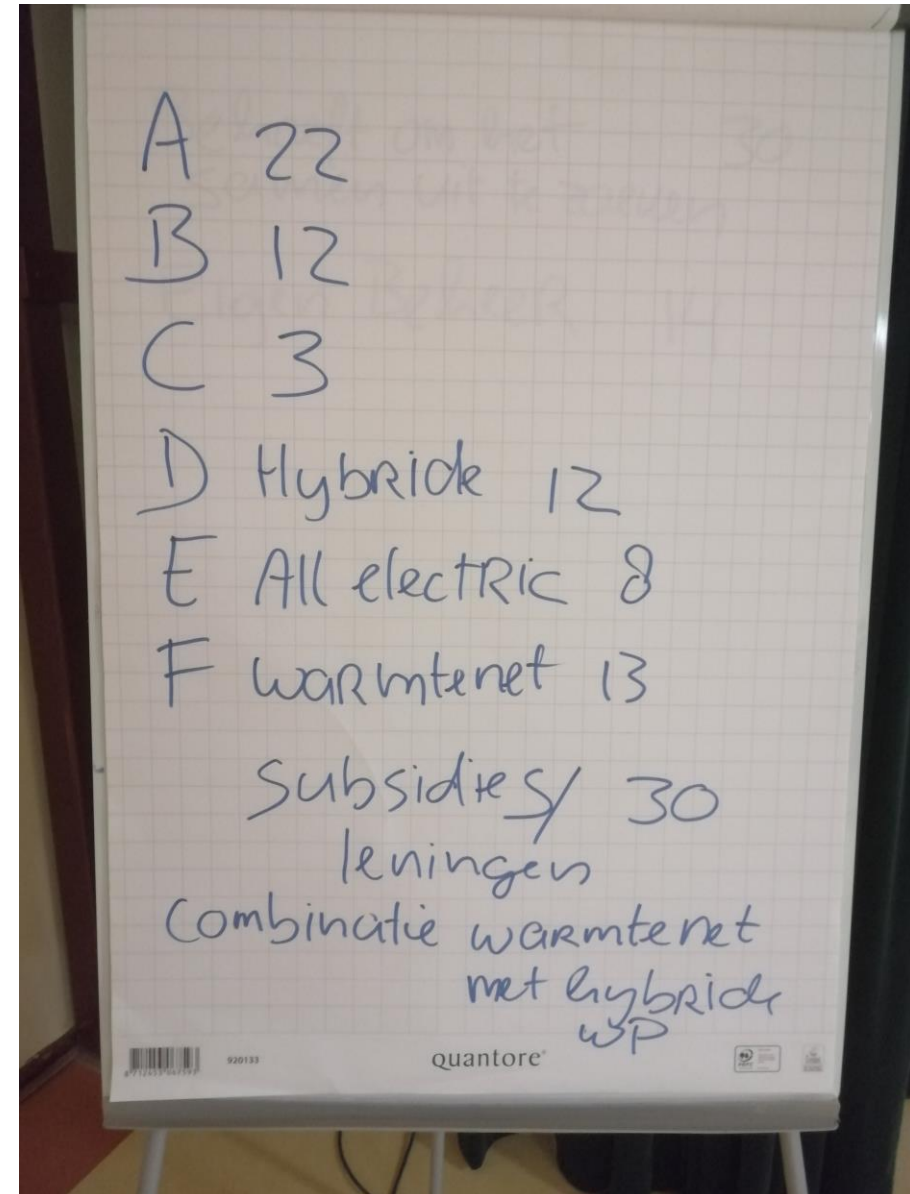 A 22
B 12
C 3
D Hybride 12
E All electric 8
F warmtenet 13
Subsidies/ 30
leningen
Combinatie warmtenet
met hybride
WP
920133
quantore